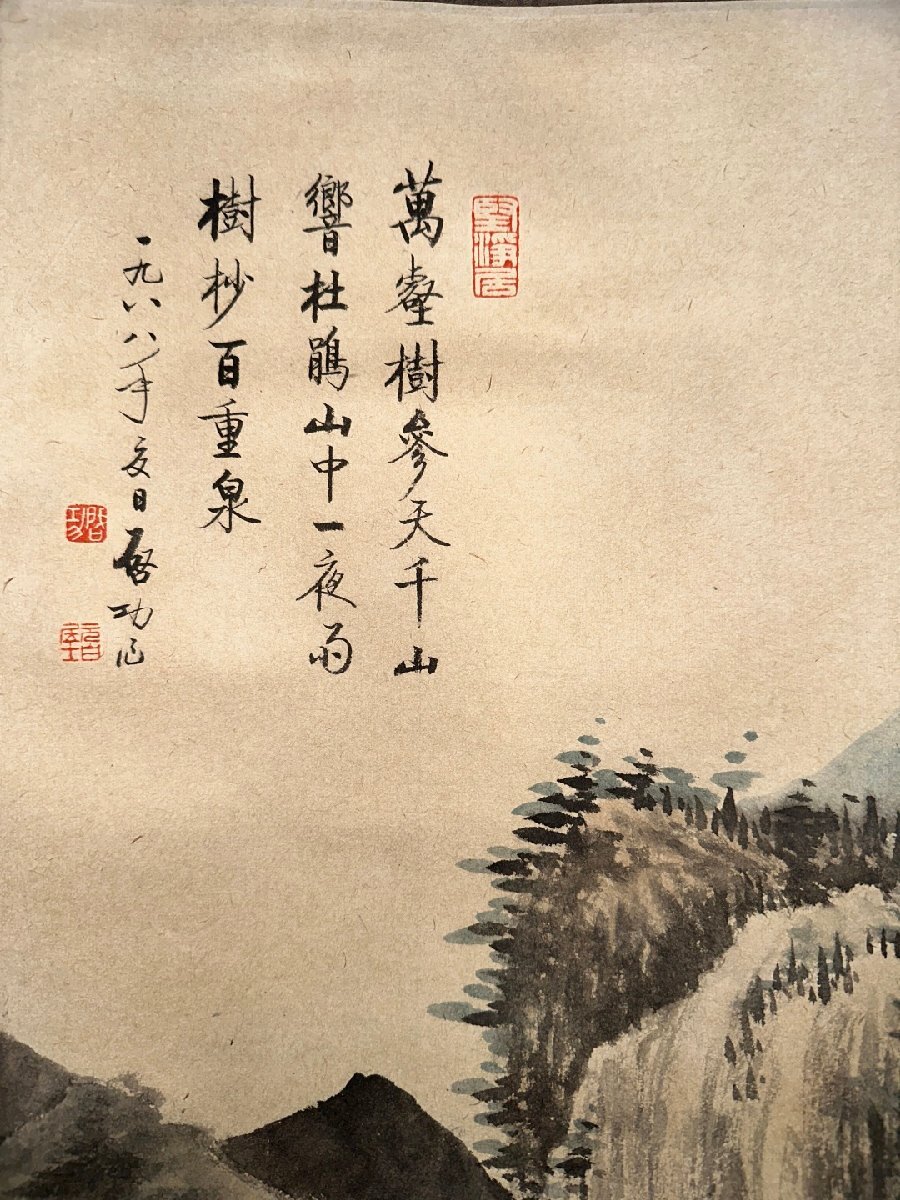 堅淨居
萬壑樹參天千山
響杜鵑山中一夜雨
樹杪百重泉
一九八八年夏日啓功
啓功